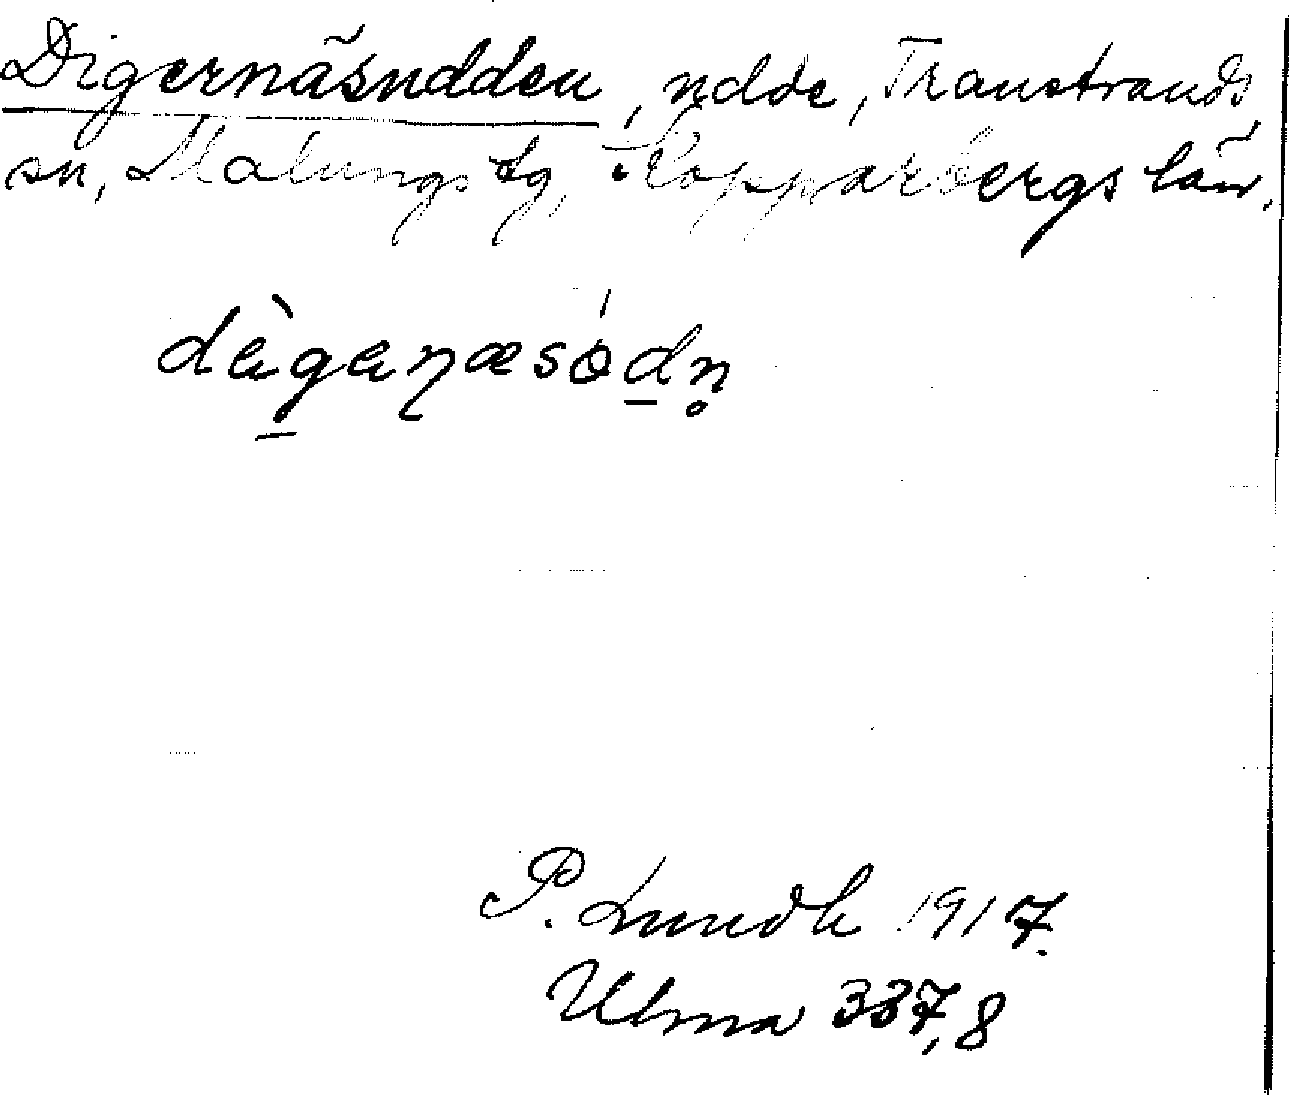 Digernäsudden, udde, Transtrands
sn, Malungs tg, Kopparbergs län.
dèganæsódn̥
P. Lundh 1917.
Ulma 337,8